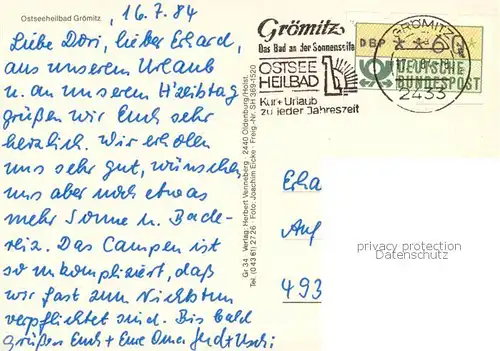 Ostseeheilbad Grömitz
16.7.84
Liebe Dori, lieber Erhard,
aus unserem Urlaub
u. an unserem Hzeitstag
grüßen wir Euch sehr
herzlich. Wir erholen
uns sehr gut, wünschen
uns aber noch etwas
mehr Sonne u. Bade-
reiz. Das Campen ist
so unkompliziert, daß
wir fast zum Nichtstun
verpflichtet sind. Bis bald
grüßen Euch + Eure Oma Gerd + Uschi
Gr 34 · Verlag: Herbert Venneberg · 2440 Oldenburg/Holst.
Tel. (0 43 61) 27 26 · Foto: Joachim Eicke · Freig.-Nr. SH 389-1520
Grömitz
Das Bad an der Sonnenseite
OSTSEE
HEILBAD
Kur + Urlaub
zu jeder Jahreszeit
DBP
DEUTSCHE
BUNDESPOST
GRÖMITZ
2433
Erha
Auf
493
privacy protection